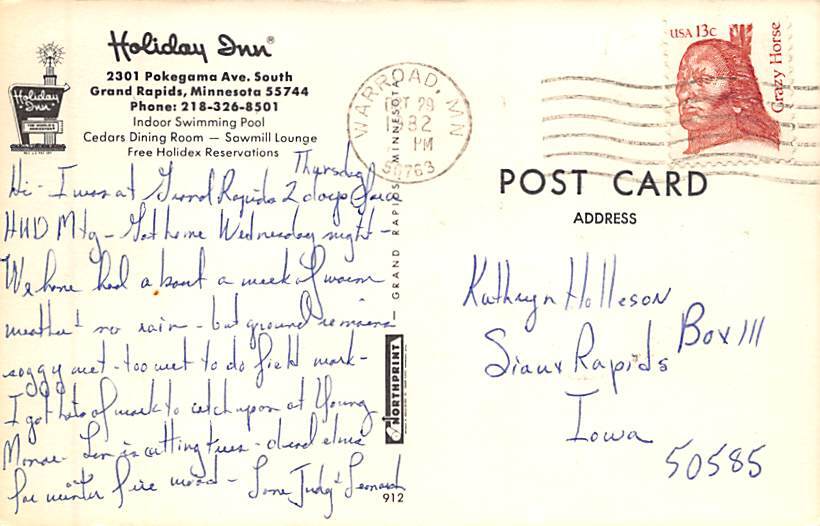 Holiday Inn®
2301 Pokegama Ave. South
Grand Rapids, Minnesota 55744
Phone: 218-326-8501
Indoor Swimming Pool
Cedars Dining Room — Sawmill Lounge
Free Holidex Reservations
Holiday Inn
Thursday
Hi - I was at Grand Rapids 2 days for a
HUD Mtg - Got home Wednesday night -
We have had about a week of warm
weather & no rain - but ground remains
soggy wet - too wet to do field work -
I got lots of work to catch up on at Young
Monroe - Len is cutting trees - dead elms
for winter fire wood - Love Judy & Leonard
912
GRAND RAPIDS, MINNESOTA
NORTHPRINT
WARROAD, MN
OCT 29
1982
PM
56763
USA 13c
Crazy Horse
POST CARD
ADDRESS
Kathryn Holleson
Box 111
Sioux Rapids
Iowa
50585